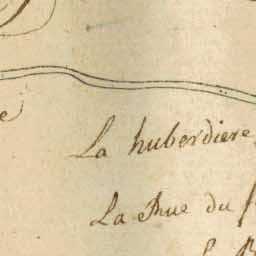 e
La huberdiere
La Rue du